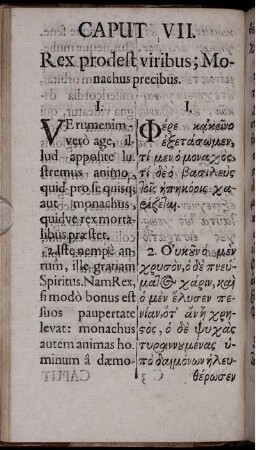 CAPUT VII.
Rex prodest viribus; Mo-
nachus precibus.
I.
VErumenim-
vero age, il-
lud apposite lu-
stremus animo,
quid prose quisq;
aut monachus,
quidve rex morta-
libus præstet.
2. Iste nempe au-
rum, ille gratiam
Spiritus. Nam Rex,
si modò bonus est
sous paupertate
levat: monachus
autem animas ho-
minum â dæmo-
I.
Φέρε κἀκεῖνο
ἐξετάσωμεν,
τί μὲν ὁ μοναχὸς,
τί δὲ ὁ βασιλεὺς
τοῖς ὑπηκόοις χα-
ρίζεται.
2. Οὐκοῦν ὁ μὲν
χρυσὸν, ὁ δὲ πνεύ-
ματος χάριν, καὶ
ὁ μὲν ἔλυσεν πε-
νίαν, ὅτ' ἂν ᾖ χρη-
στὸς, ὁ δὲ ψυχὰς
τυραννουμένας ὑ-
πὸ δαιμόνων ἠλευ-
θέρωσεν